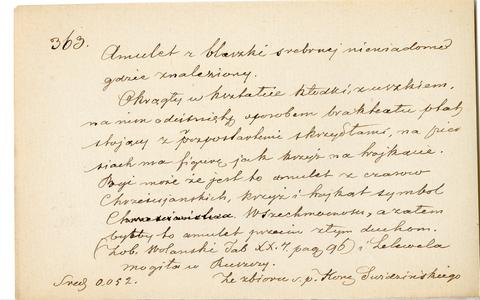 363.
Amulet z blaszki srebrnej niewiadomo
gdzie znaleziony.
Okrągły w kształcie kłódki, z uszkiem,
na nim odciśnięty sposobem brakteatu ptak
stojący z rozpostartemi skrzydłami, na pier
siach ma figurę jak krzyż na
Być może że jest to amulet z czasów
Chrześcijańskich, krzyż i symbol
Wszechmocności, a zatem
byłby to amulet przeciw złym duchom.
(Zob. Wolański Tab XX. 7. pag 96) i Lelewela
mogiła w Ruszczy.
Śred 0,052. Ze zbioru ś. p. Kons. Świdzińskiego